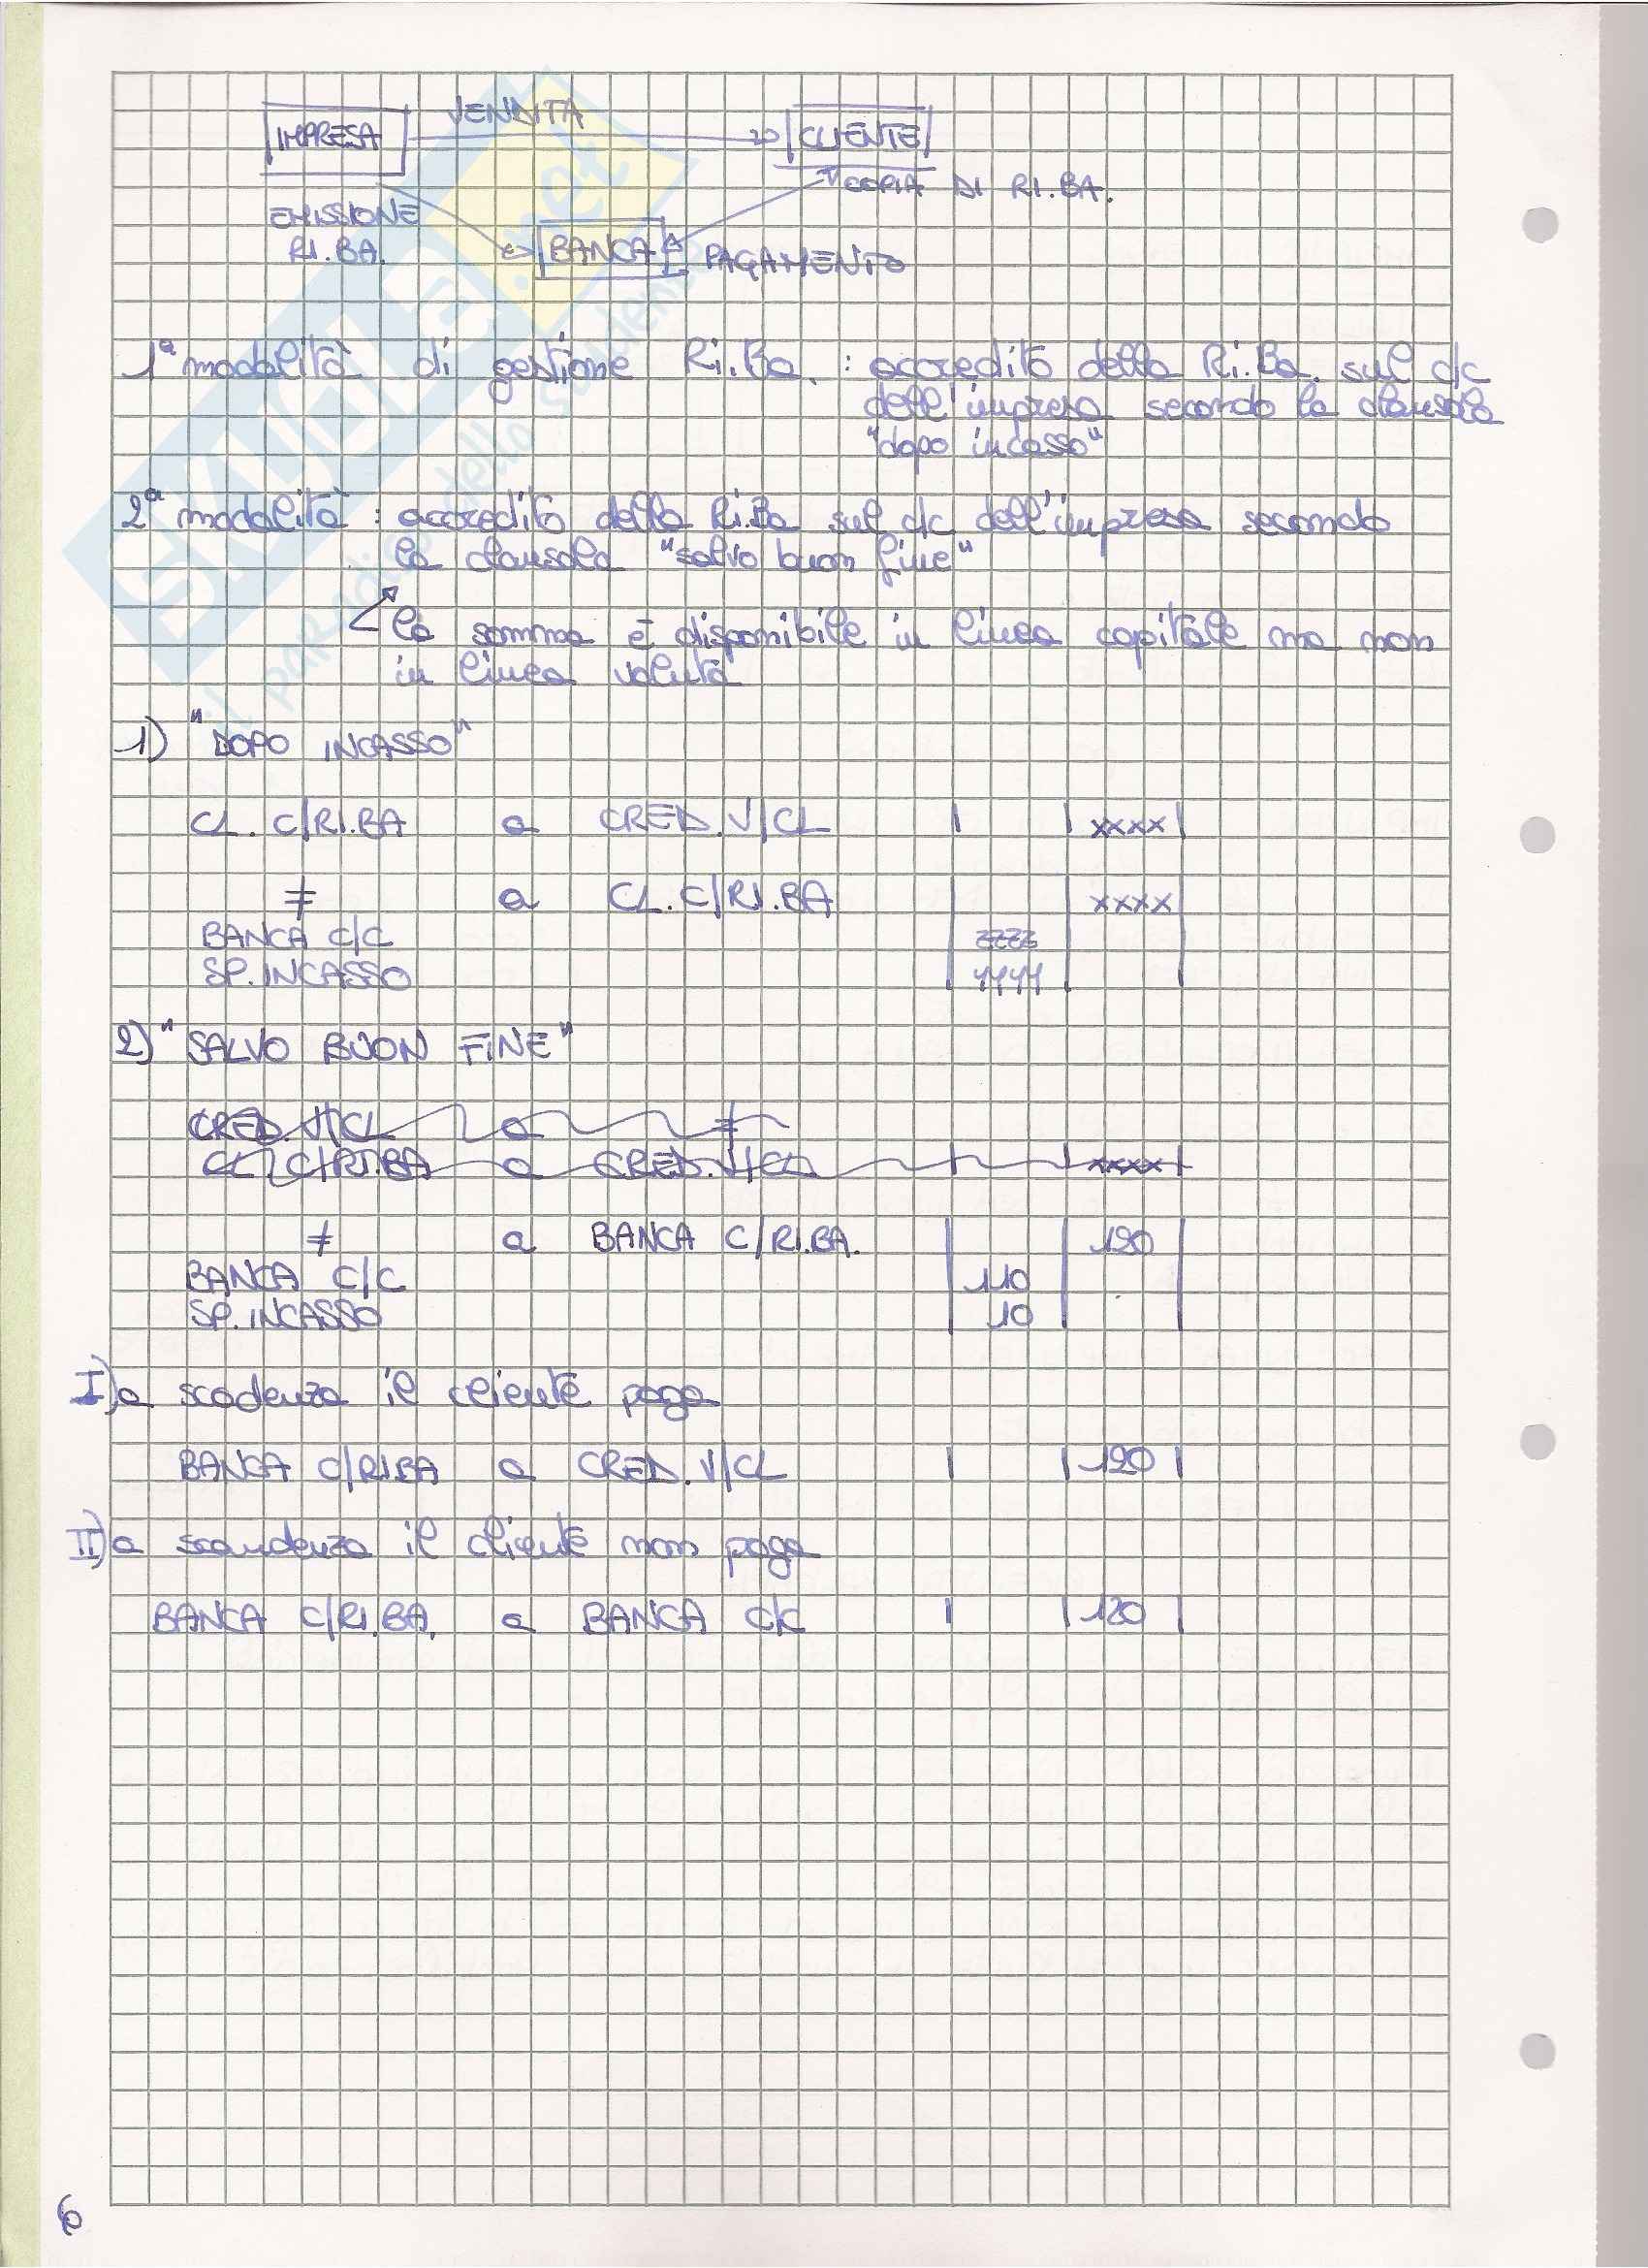 VENDITA
IMPRESA CLIENTE
COPIA DI RI.BA.
EMISSIONE
RI.BA. BANCA PAGAMENTO
1ª modalità di gestione Ri.Ba. : accredito della Ri.Ba. sul c/c
dell'impresa secondo la clausola
"dopo incasso"
2ª modalità : accredito della Ri.Ba sul c/c dell'impresa secondo
la clausola "salvo buon fine"
la somma è disponibile in linea capitale ma non
in linea valuta
1) "DOPO INCASSO"
CL. C/RI.BA a CRED. V/CL xxxx
≠ a CL. C/RI.BA xxxx
BANCA C/C zzzz
SP. INCASSO yyyy
2) "SALVO BUON FINE"
CRED. V/CL a ≠
CL C/RI.BA a CRED. V/CL xxxx
≠ a BANCA C/RI.BA. 120
BANCA C/C 110
SP. INCASSO 10
I) a scadenza il celiente paga
BANCA C/RI.BA a CRED. V/CL 120
II) a scandenza il cliente non paga
BANCA C/RI.BA. a BANCA C/C 120
6
SKUOLA.net
il paradiso dello studente